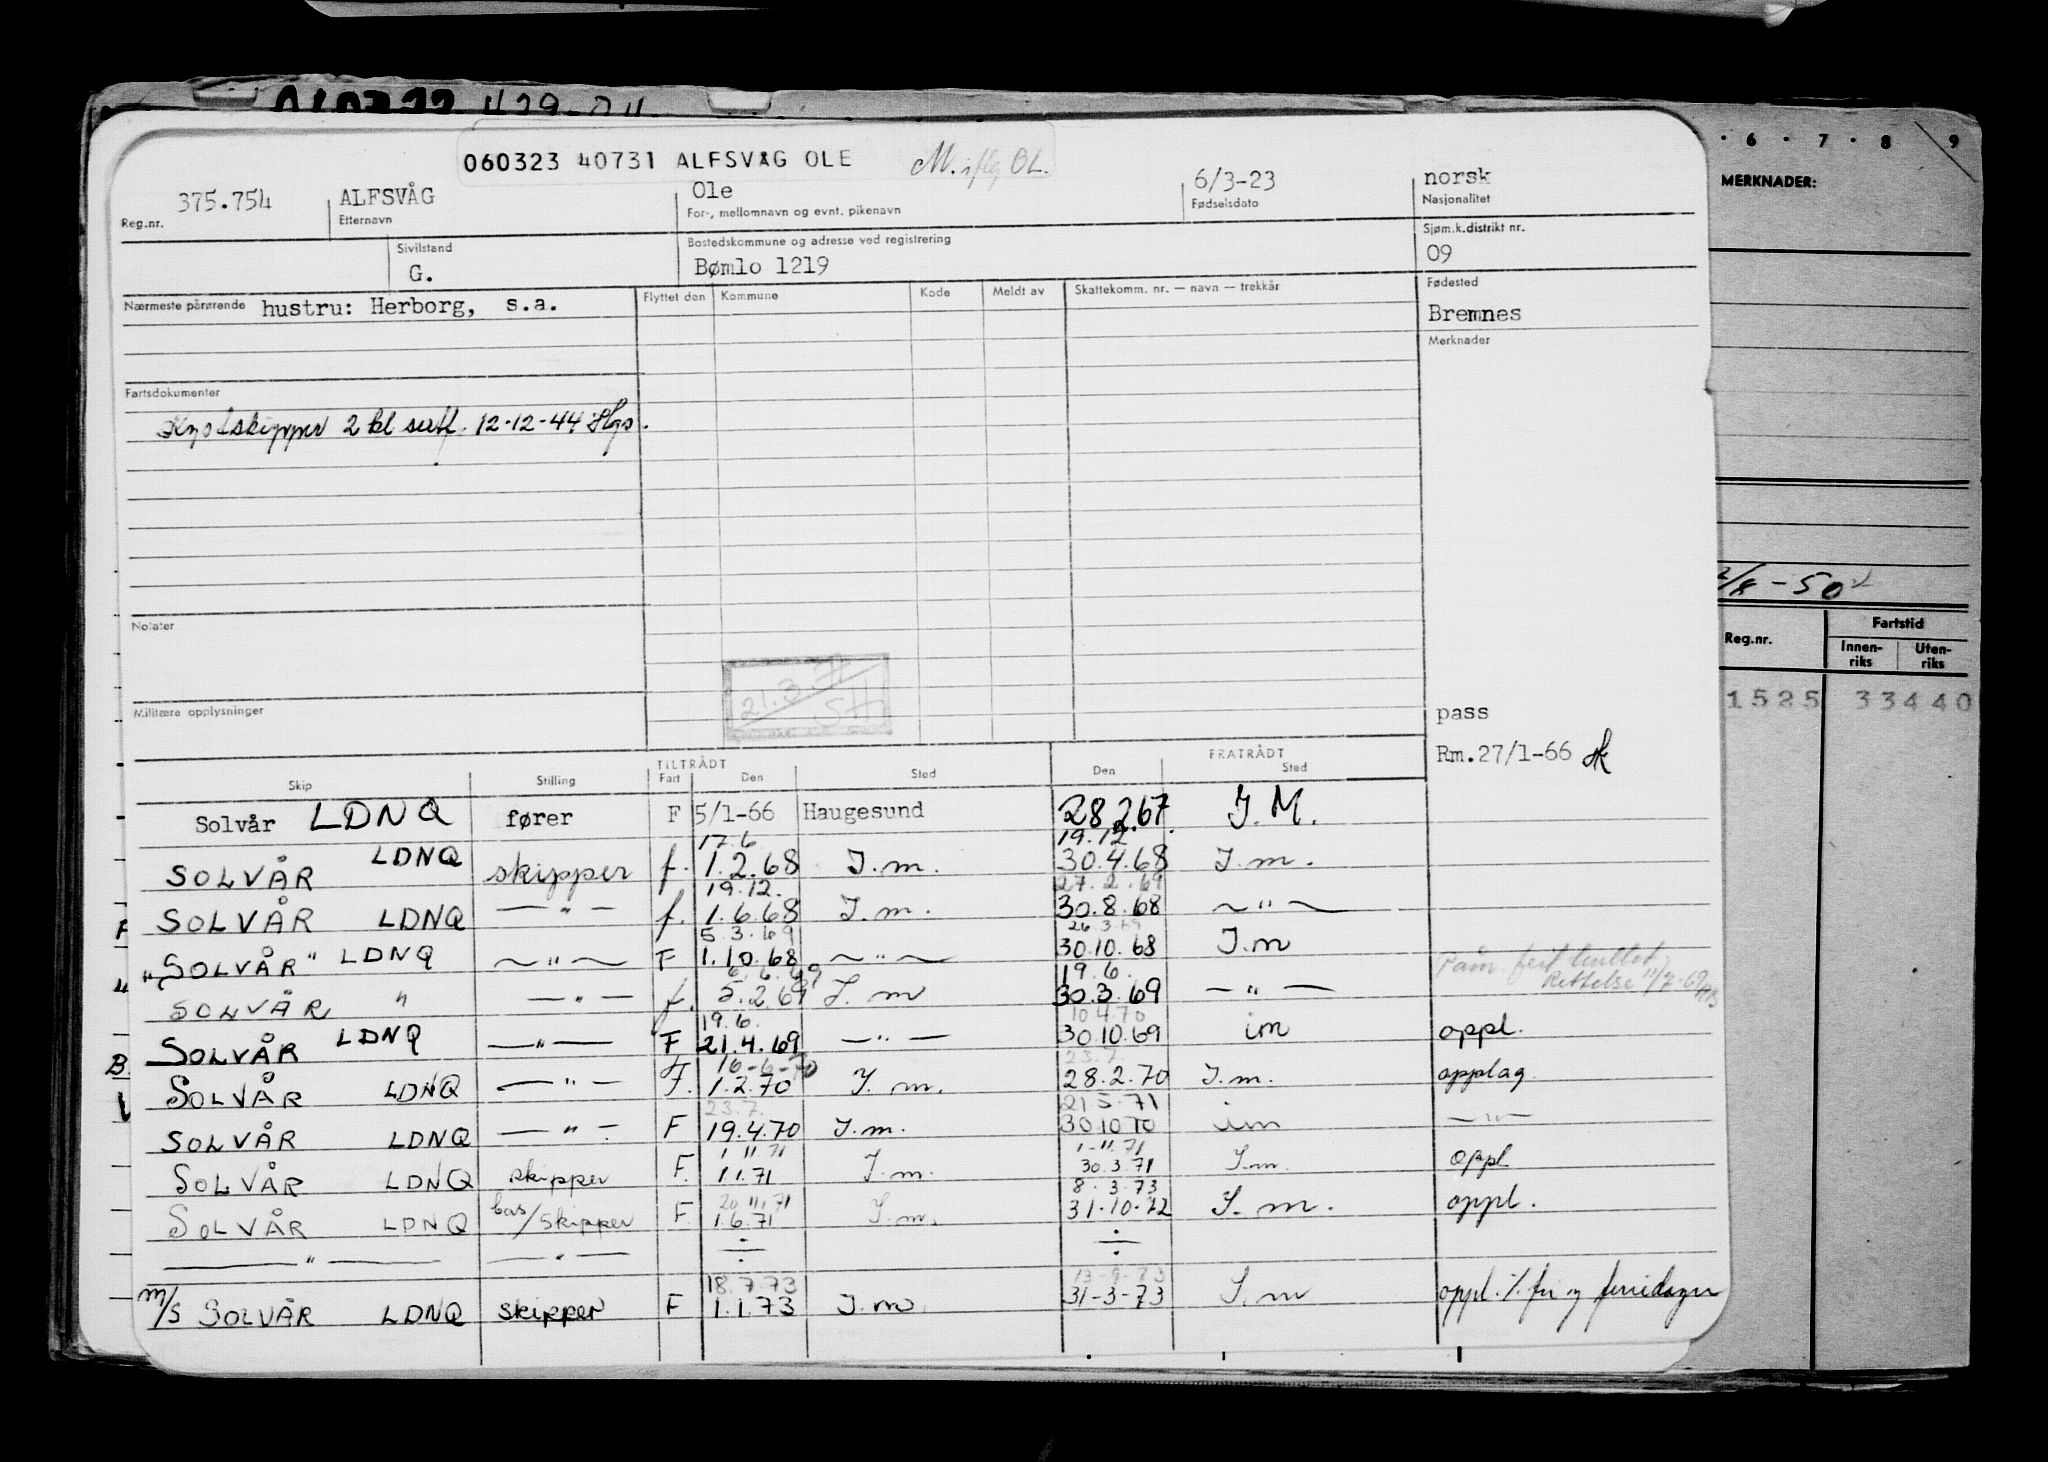 060323 40731 ALFSVÅG OLE
Reg.nr. 375.754
ALFSVÅG
Etternavn
Ole
For-, mellomnavn og evnt. pikenavn
6/3-23
Fødselsdato
norsk
Nasjonalitet
Sivilstand
G.
Bostedskommune og adresse ved registrering
Bømlo 1219
Sjøm.k.distrikt nr.
09
Nærmeste pårørende hustru: Herborg, s.a.
Flyttet den Kommune Kode Meldt av Skattekomm. nr. — navn — trekkår
Fødested
Bremnes
Merknader
Fartsdokumenter
Kystskipper 2 kl sertf. 12-12-44 Hgs.
Notater
21.3.
SH
Militære opplysninger
pass
Rm.27/1-66
TILTRÅDT FRATRÅDT
Skip Stilling Fart Den Sted Den Sted
Solvår LDNQ fører F 5/1-66 Haugesund 28.2.67 I.M.
17.6 19.12
SOLVÅR LDNQ skipper f. 1.2.68 I.m. 30.4.68 I.m.
19.12. 27.2.69
SOLVÅR LDNQ — " — f. 1.6.68 I.m. 30.8.68 — " —
5.3.69 26.3.69
"SOLVÅR" LDNQ — " — F 1.10.68 — " — 30.10.68 I.m
6.6.69 19.6.
SOLVÅR " — " — f. 5.2.69 I.m 30.3.69 — " — Rettelse
19.6. 10.4.70
SOLVÅR LDNQ — " — F 21.4.69 — " — 30.10.69 im oppl.
16-6-70 23.7.
SOLVÅR LDNQ — " — F. 1.2.70 I.m. 28.2.70 I.m. opplag
23.7. 21.5.71
SOLVÅR LDNQ — " — F 19.4.70 I.m. 30.10.70 im — " —
1.11.71 1-11.71
SOLVÅR LDNQ skipper F. 1.1.71 I.m. 30.3.71 I.m. oppl
20.11.71 8.3.73
SOLVÅR LDNQ bas/skipper F. 1.6.71 I.m. 31.10.72 I.m. oppl.
— " — — " — ÷ ÷
18.7.73 13-9-73
m/s SOLVÅR LDNQ skipper F 1.1.73 I.m. 31-3-73 I.m
6 . 7 . 8 9
MERKNADER:
-50
Reg.nr. Fartstid
Innen-riks Uten-riks
1525 33440